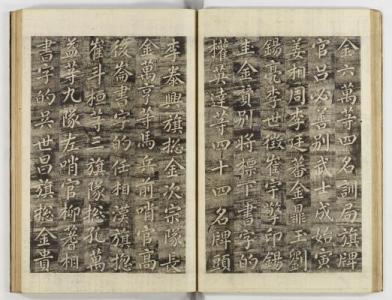 金六萬等四名訓局旗牌
官呂必善別武士成始寅
姜相周李廷蕃金
錫亮李世徵崔宗學印錫
圭金寶別將標下書字的
權英達等四十四名牌頭
李泰興旗摠金次宗隊長
金萬亨等馬兵前哨官高
後崙書字的任相漢旗摠
崔斗桓等三旗隊摠孔萬
益等九隊左哨官柳著相
書字的吳世昌旗摠金貴